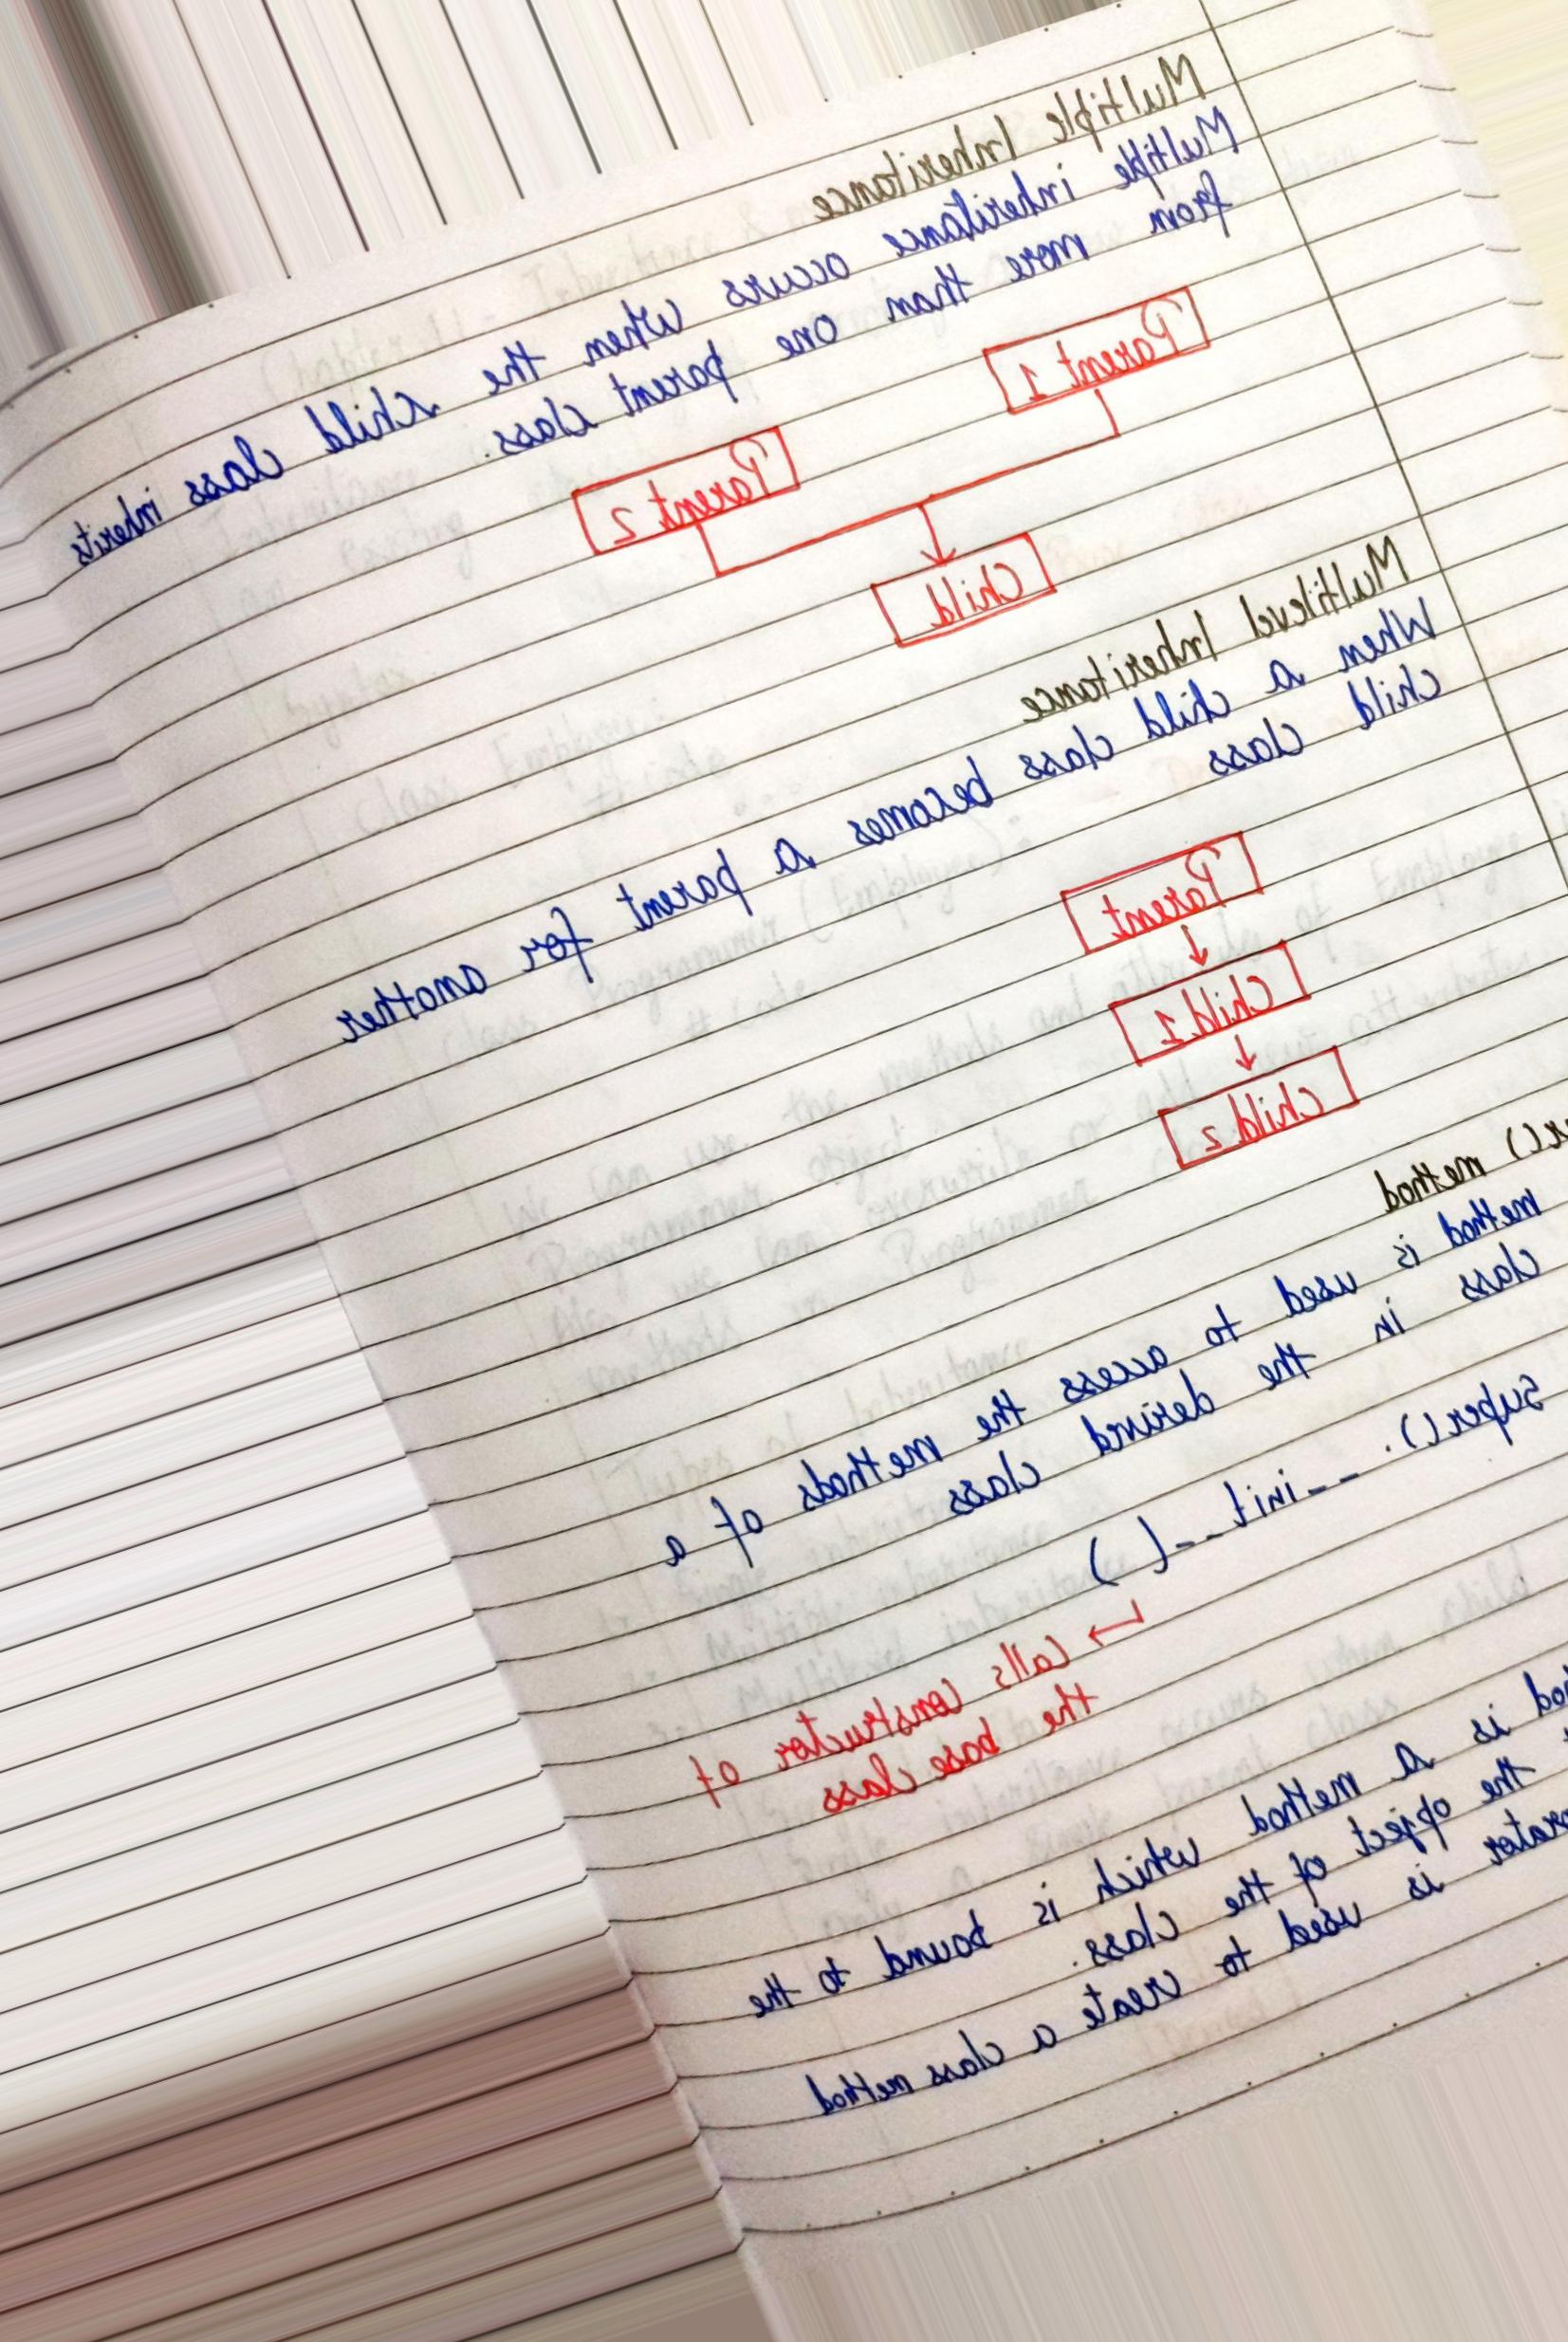 Multiple Inheritance
Multiple inheritance occurs when the child class inherits
from more than one parent class.
Parent 1
Parent 2
Child
Multilevel Inheritance
When a child class becomes a parent for another
child class
Parent
Child 1
Child 2
er() method
method is used to access the methods of a
class in the derived class
super().__init__()
↳ Calls constructor of
the base class
hod is a method which is bound to the
the object of the class.
erator is used to create a class method